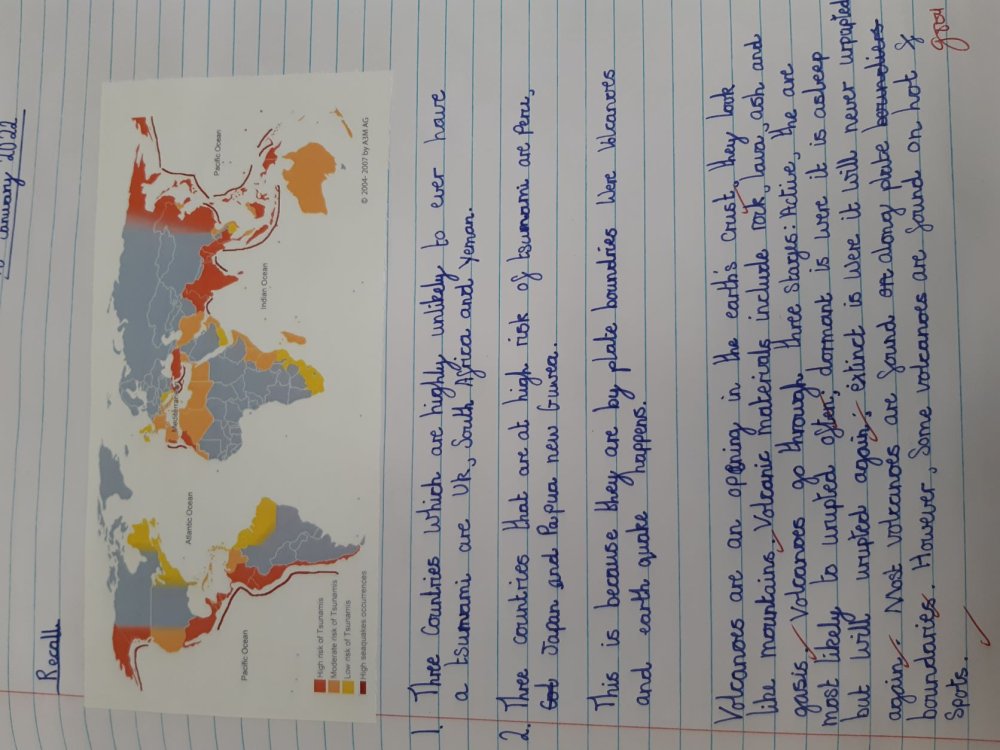 January 2022
Recall
Pacific Ocean
Atlantic Ocean
Indian Ocean
Pacific Ocean
High risk of Tsunamis
Moderate risk of Tsunamis
Low risk of Tsunamis
High seaquakes occurrences
© 2004- 2007 by A3M AG
1. Three Countries which are highly unlikely to ever have
a tsunami are UK, South Africa and Yeman.
2. Three countries that are at high risk of tsunami are Peru,
Japan and Papua new Guinea.
This is because they are by plate boundries were Volcanoes
and earth quake happens.
Volcanoes are an opening in the earth's crust, they look
like mountains. Volcanic materials include rock, lava, ash and
gasis. Volcanoes go through three Stages: Active, the are
most likely to urupted often, dormant is were it is asleep
but will urupted again, extinct is were it will never urupted
again. Most volcanoes are found on along plate boundries
boundaries. However, Some volcanoes are found on hot
Spots.
good